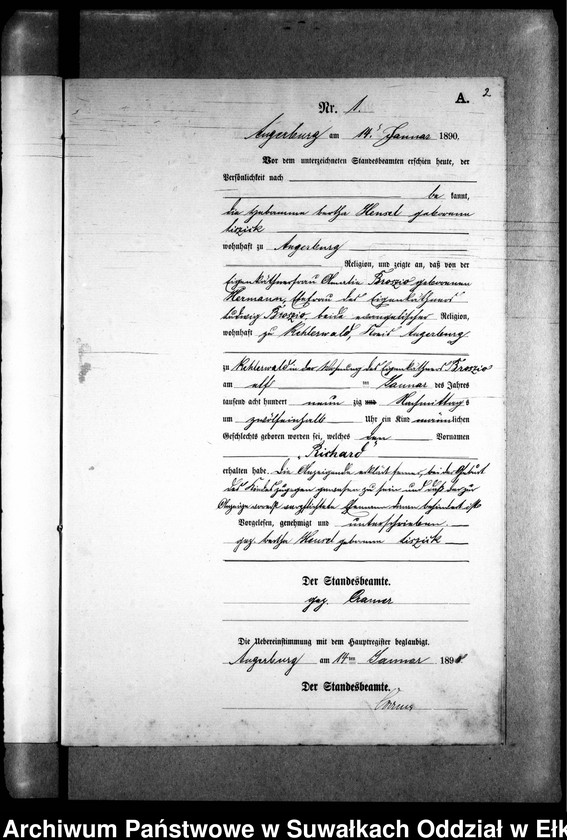 2
A.
Nr. 1.
Angerburg am 14. Januar 1890.
Vor dem unterzeichneten Standesbeamten erschien heute, der
Persönlichkeit nach
be kannt,
die Hebamme Bertha Hensel geborene
wohnhaft zu Angerburg
Religion, und zeigte an, daß von der
Eigenkäthnerfrau Amalie Broszio geborenen
Hermann, Ehefrau des Eigenkäthners
Ludwig Broszio, beide evangelischer Religion,
wohnhaft zu Kehlerwald, Kreis Angerburg
zu Kehlerwald in der Wohnung des Eigenkäthners Broszio
am elf ten Januar des Jahres
tausend acht hundert neun zig und Nachmittags
um zwölfeinhalb Uhr ein Kind männlichen
Geschlechts geboren worden sei, welches den Vornamen
„Richard"
erhalten habe. Die Anzeigende erklärt ferner, bei der Geburt
des Kindes zugegen gewesen zu sein und daß der zur
Anzeige verpflichtete Ehemann daran behindert ist.
Vorgelesen, genehmigt und unterschrieben
gez. Bertha Hensel geborene
Der Standesbeamte.
gez. Cramer
Die Uebereinstimmung mit dem Hauptregister beglaubigt.
Angerburg am 14ten Januar 1890.
Der Standesbeamte.
Archiwum Państwowe w Suwałkach Oddział w Ełk